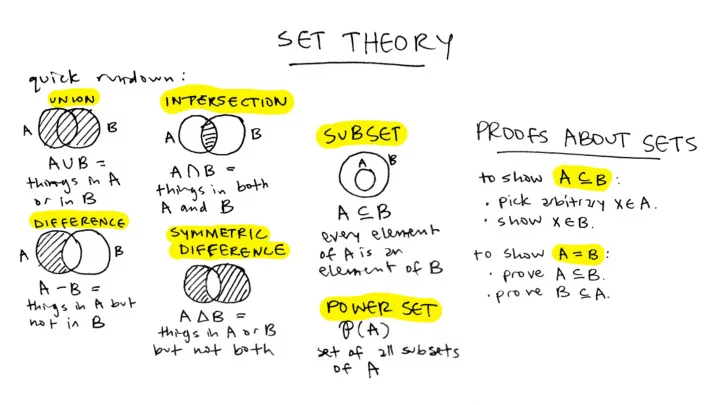 SET THEORY
quick rundown:
UNION
A B
A∪B =
things in A
or in B
INTERSECTION
A B
A∩B =
things in both
A and B
DIFFERENCE
A B
A - B =
things in A but
not in B
SYMMETRIC
DIFFERENCE
A△B =
things in A or B
but not both
SUBSET
A B
A ⊆ B
every element
of A is an
element of B
POWER SET
P(A)
set of all subsets
of A
PROOFS ABOUT SETS
to show A ⊆ B:
• pick arbitrary x∈A.
• show x∈B.
to show A = B:
• prove A ⊆ B.
• prove B ⊆ A.